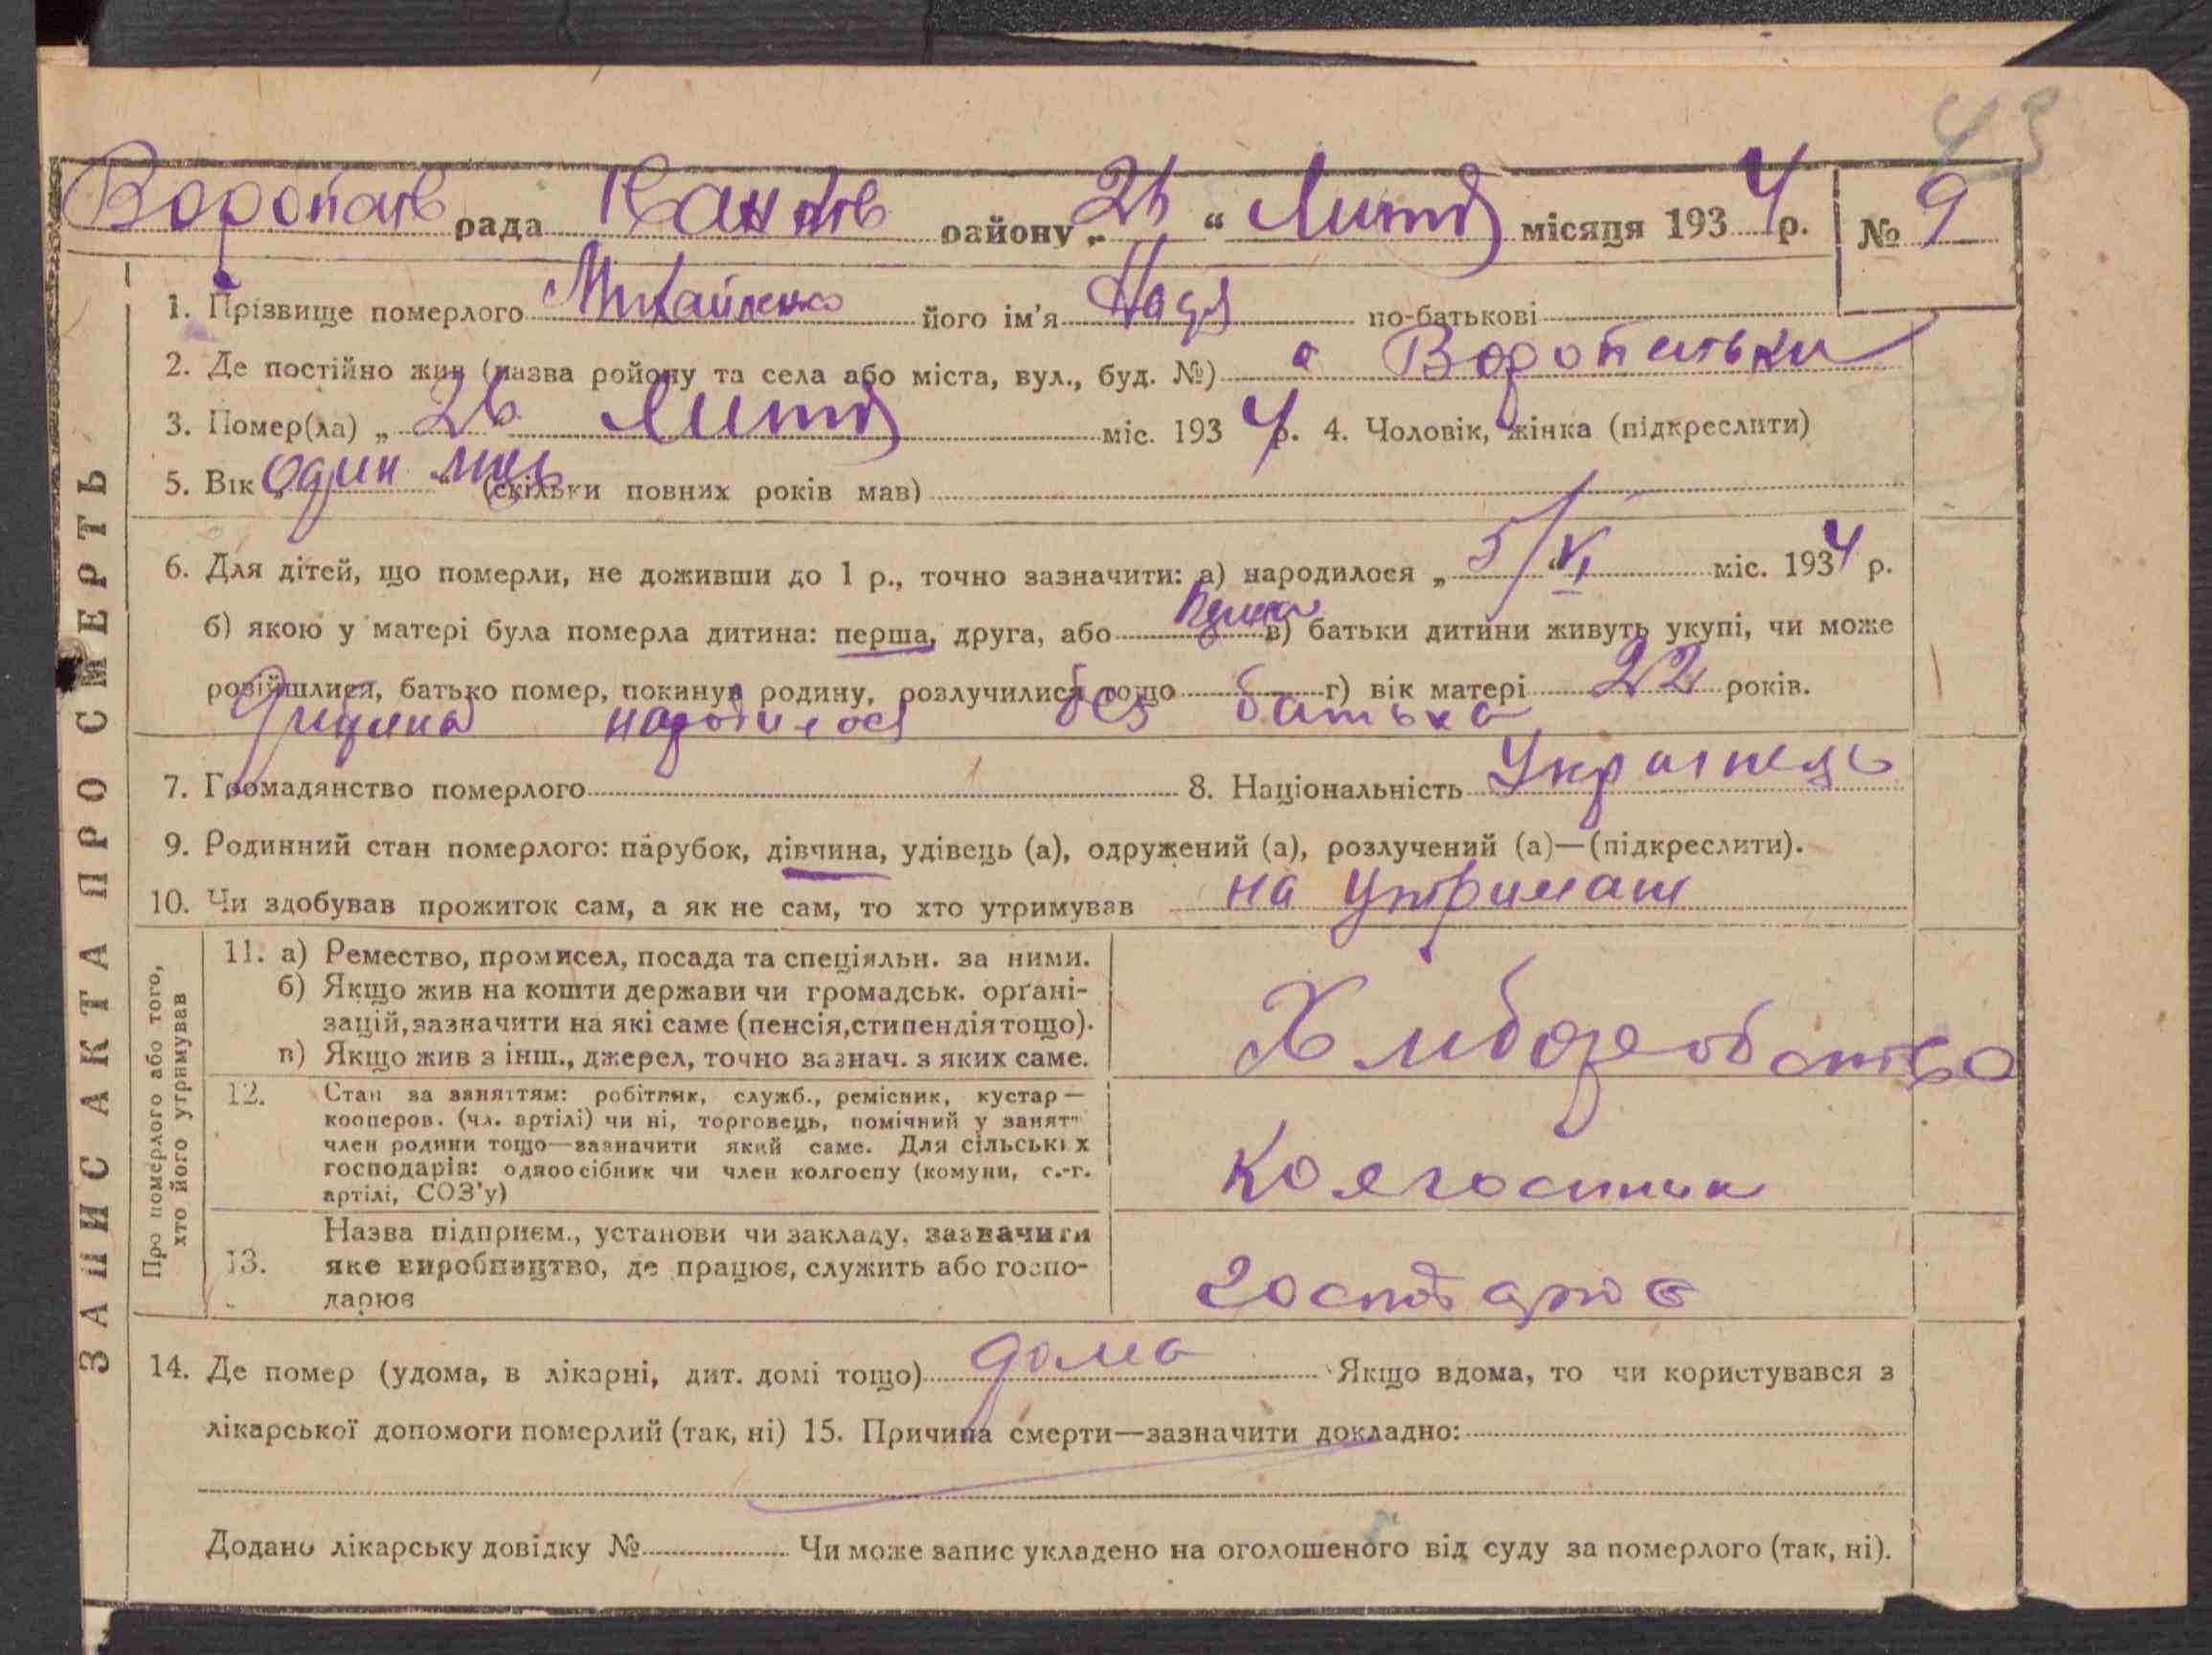 43
Воропаїв рада Канів району „ 26 “ Лютня місяця 1934 р. № 9
ЗАПИС АКТА ПРО СМЕРТЬ
1. Прізвище померлого Михайленко його ім’я Надя по-батькові
2. Де постійно жив (назва ройону та села або міста, вул., буд. №) с Воропаївки
3. Помер(ла) „ 26 “ Лютня міс. 1934 р. 4. Чоловік, жінка (підкреслити)
5. Вік „ один міць “ (скільки повних років мав)
6. Для дітей, що померли, не доживши до 1 р., точно зазначити: а) народилося „ 5/VI “ міс. 1934 р.
б) якою у матері була померла дитина: перша, друга, або перша в) батьки дитини живуть укупі, чи може
розійшлися, батько помер, покинув родину, розлучилися тощо г) вік матері 22 років.
Дитина народилося без батька
7. Громадянство померлого 8. Національність Українець
9. Родинний стан померлого: парубок, дівчина, удівець (а), одружений (а), розлучений (а)—(підкреслити).
10. Чи здобував прожиток сам, а як не сам, то хто утримував на утримані
Про померлого або того,
хто його утримував
11. а) Ремество, промисел, посада та спеціяльн. за ними.
б) Якщо жив на кошти держави чи громадськ. орґані-
зацій, зазначити на які саме (пенсія, стипендія тощо).
в) Якщо жив з інш., джерел, точно зазнач. з яких саме.
Хліборобство
12. Стан за заняттям: робітник, служб., ремісник, кустар—
кооперов. (чл. артілі) чи ні, торговець, помічний у занят"
член родини тощо—зазначити який саме. Для сільських
господарів: одноосібник чи член колгоспу (комуни, с.-г.
артілі, СОЗ'у)
Колгоспник
13. Назва підприєм., установи чи закладу, зазначити
яке виробництво, де працює, служить або госпо-
дарює
господарює
14. Де помер (удома, в лікарні, дит. домі тощо) дома Якщо вдома, то чи користувався з
лікарської допомоги померлий (так, ні) 15. Причина смерти—зазначити докладно:
Додано лікарську довідку № Чи може запис укладено на оголошеного від суду за померлого (так, ні).